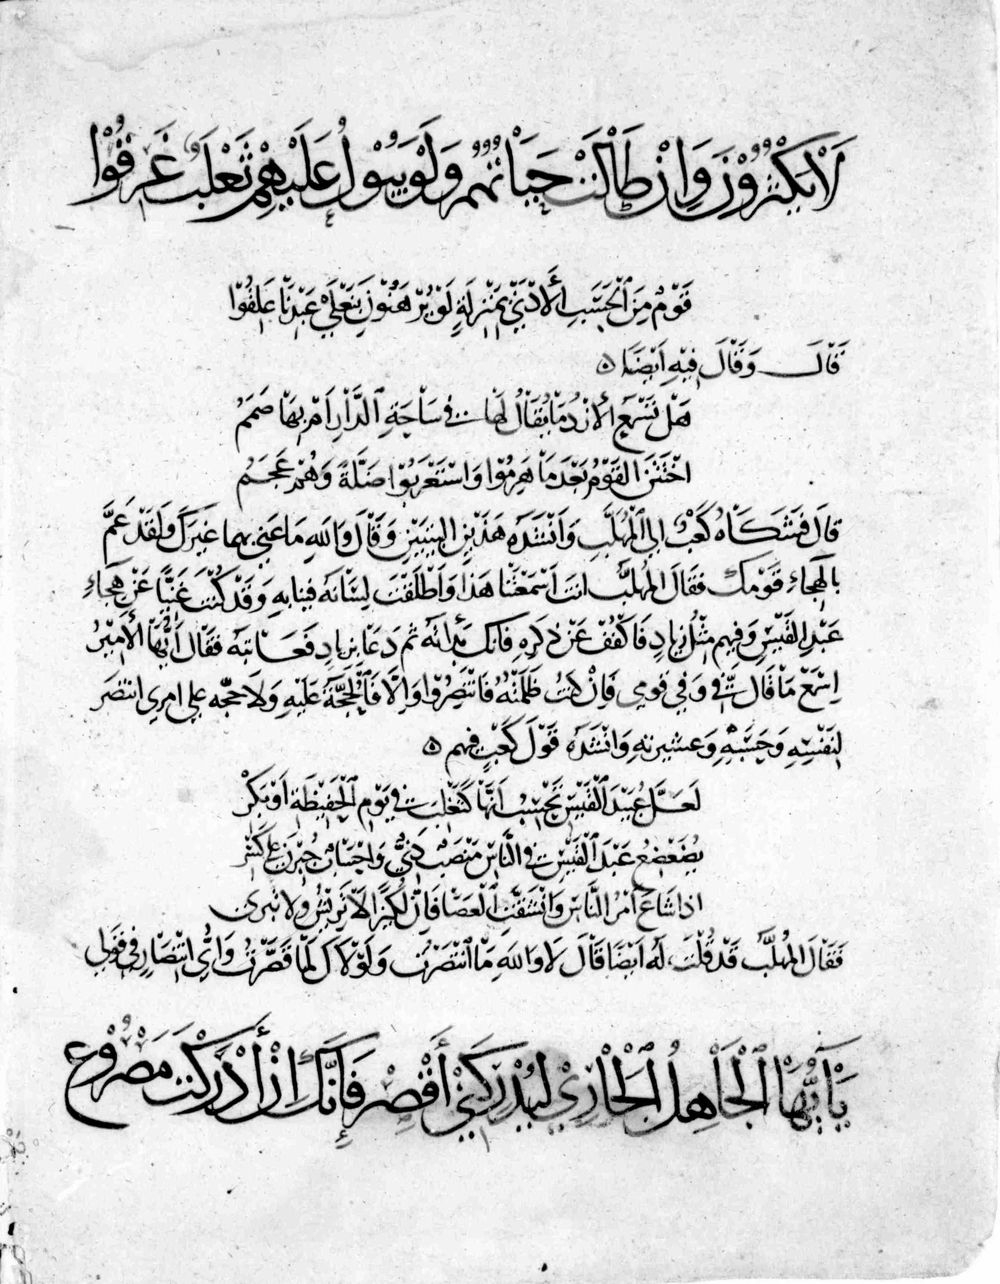 لَا يَكْثُرُوْنَ وَاِنْ طَالَتْ حَيَاتُهُمُ وَلَوْ يَبُوْلُ عَلَيْهِمْ ثَعْلَبٌ غَرِقُوْا
قَوْمٌ مِنَ الْحَسَبِ الْأَدْنَى بِمَنْزِلَةٍ لَوْ يُرْهَنُوْنَ بِنَعْلَيْ عَبْدِنَا غَلِقُوْا
قَالَ وَقَالَ فِيْهِ اَيْضًا ه
هَلْ تَسْمَعُ الأَزْدُ مَا يُقَالُ لَهَا فِي سَاحَةِ الدَّارِ اَمْ بِهَا صَمَمُ
اخْتَتَنَ القَوْمُ بَعْدَ مَا هَرِمُوْا وَاسْتَعْرَبُوْا ضَلَّةً وَهُمْ عَجَمُ
قال فشَكَاهُ كَعْبٌ الى الْمُهَلَّبِ وَاَنْشَدَهُ هَذَيْنِ البيتَيْنِ وَقَالَ وَاللهِ مَا عَنِي بهما غيرَكَ ولَقَدْ عَمَّ
بالهجاءِ قَوْمَكَ فقالَ المُهلبُ انتَ اَسْمَعْتَنَا هَذَا وَاَطْلَقْتَ لِسَانَه فِينَا بِهِ وَقَدْ كُنْتَ غَنِيًّا عَنْ هِجَاءِ
عَبْدِ القَيْسِ وَفيهم مِثْلُ زِيَادٍ فَاكْفُفْ عَنْ ذِكرِهِ فَانكَ بَدَأتَه ثم دَعَا بِزِيادٍ فَعَاتبَه فقَالَ اَيُّهَا الأَمِيْرُ
اِسْمَعْ مَا قَالَ فِيَّ وَفِي قومِي فَاِنْ كنتُ ظَلَمْتُهُ فَانتَصِرْ وَاِلَّا فَالْحُجَّةُ عَلَيْهِ وَلَا حجّه على امرِئٍ انتصَر
لنَفْسِهِ وَحَسَبِهِ وَعشيرتهِ وَانْشَدَهُ قَوْلَ كَعْبٍ فيهم ه
لَعَلَّ عُبَيْدَ الْقَيْسِ تَحْسَبُ اَنَّهَا كَتَغْلِبَ في يَوْمِ الْحَفِيْظَةِ اَوْ بَكْرِ
يُضَعْضِعُ عَبْدَ الْقَيْسِ في النَّاسِ مَنْصَبٌ دَنِيٌّ وَاَحْسَابٌ جُبِرْنَ عَلَى كَسْرِ
اذا شَاعَ اَمْرُ النَّاسِ وَانْشَقَّتِ الْعَصَا فَاِنَّ لُكَيْزًا لَا تَرِيْشُ وَلَا تَبْرِي
فَقَالَ المُهَلَّبُ قَدْ قُلْتَ لَه اَيْضًا قَالَ لَا وَاللهِ مَا انْتَصَرْتُ وَلَوْلَاكَ لَمَا قَصَّرْتُ وَاَيُّ انْتِصَارٍ في قَوْلِي
يَا أَيُّهَا الْجَاهِلُ الْجَارِيْ لِيُدْرِكَنِيْ أَقْصِرْ فَإِنَّكَ اِنْ أَدْرَكْتَ مَصْرُوْعُ